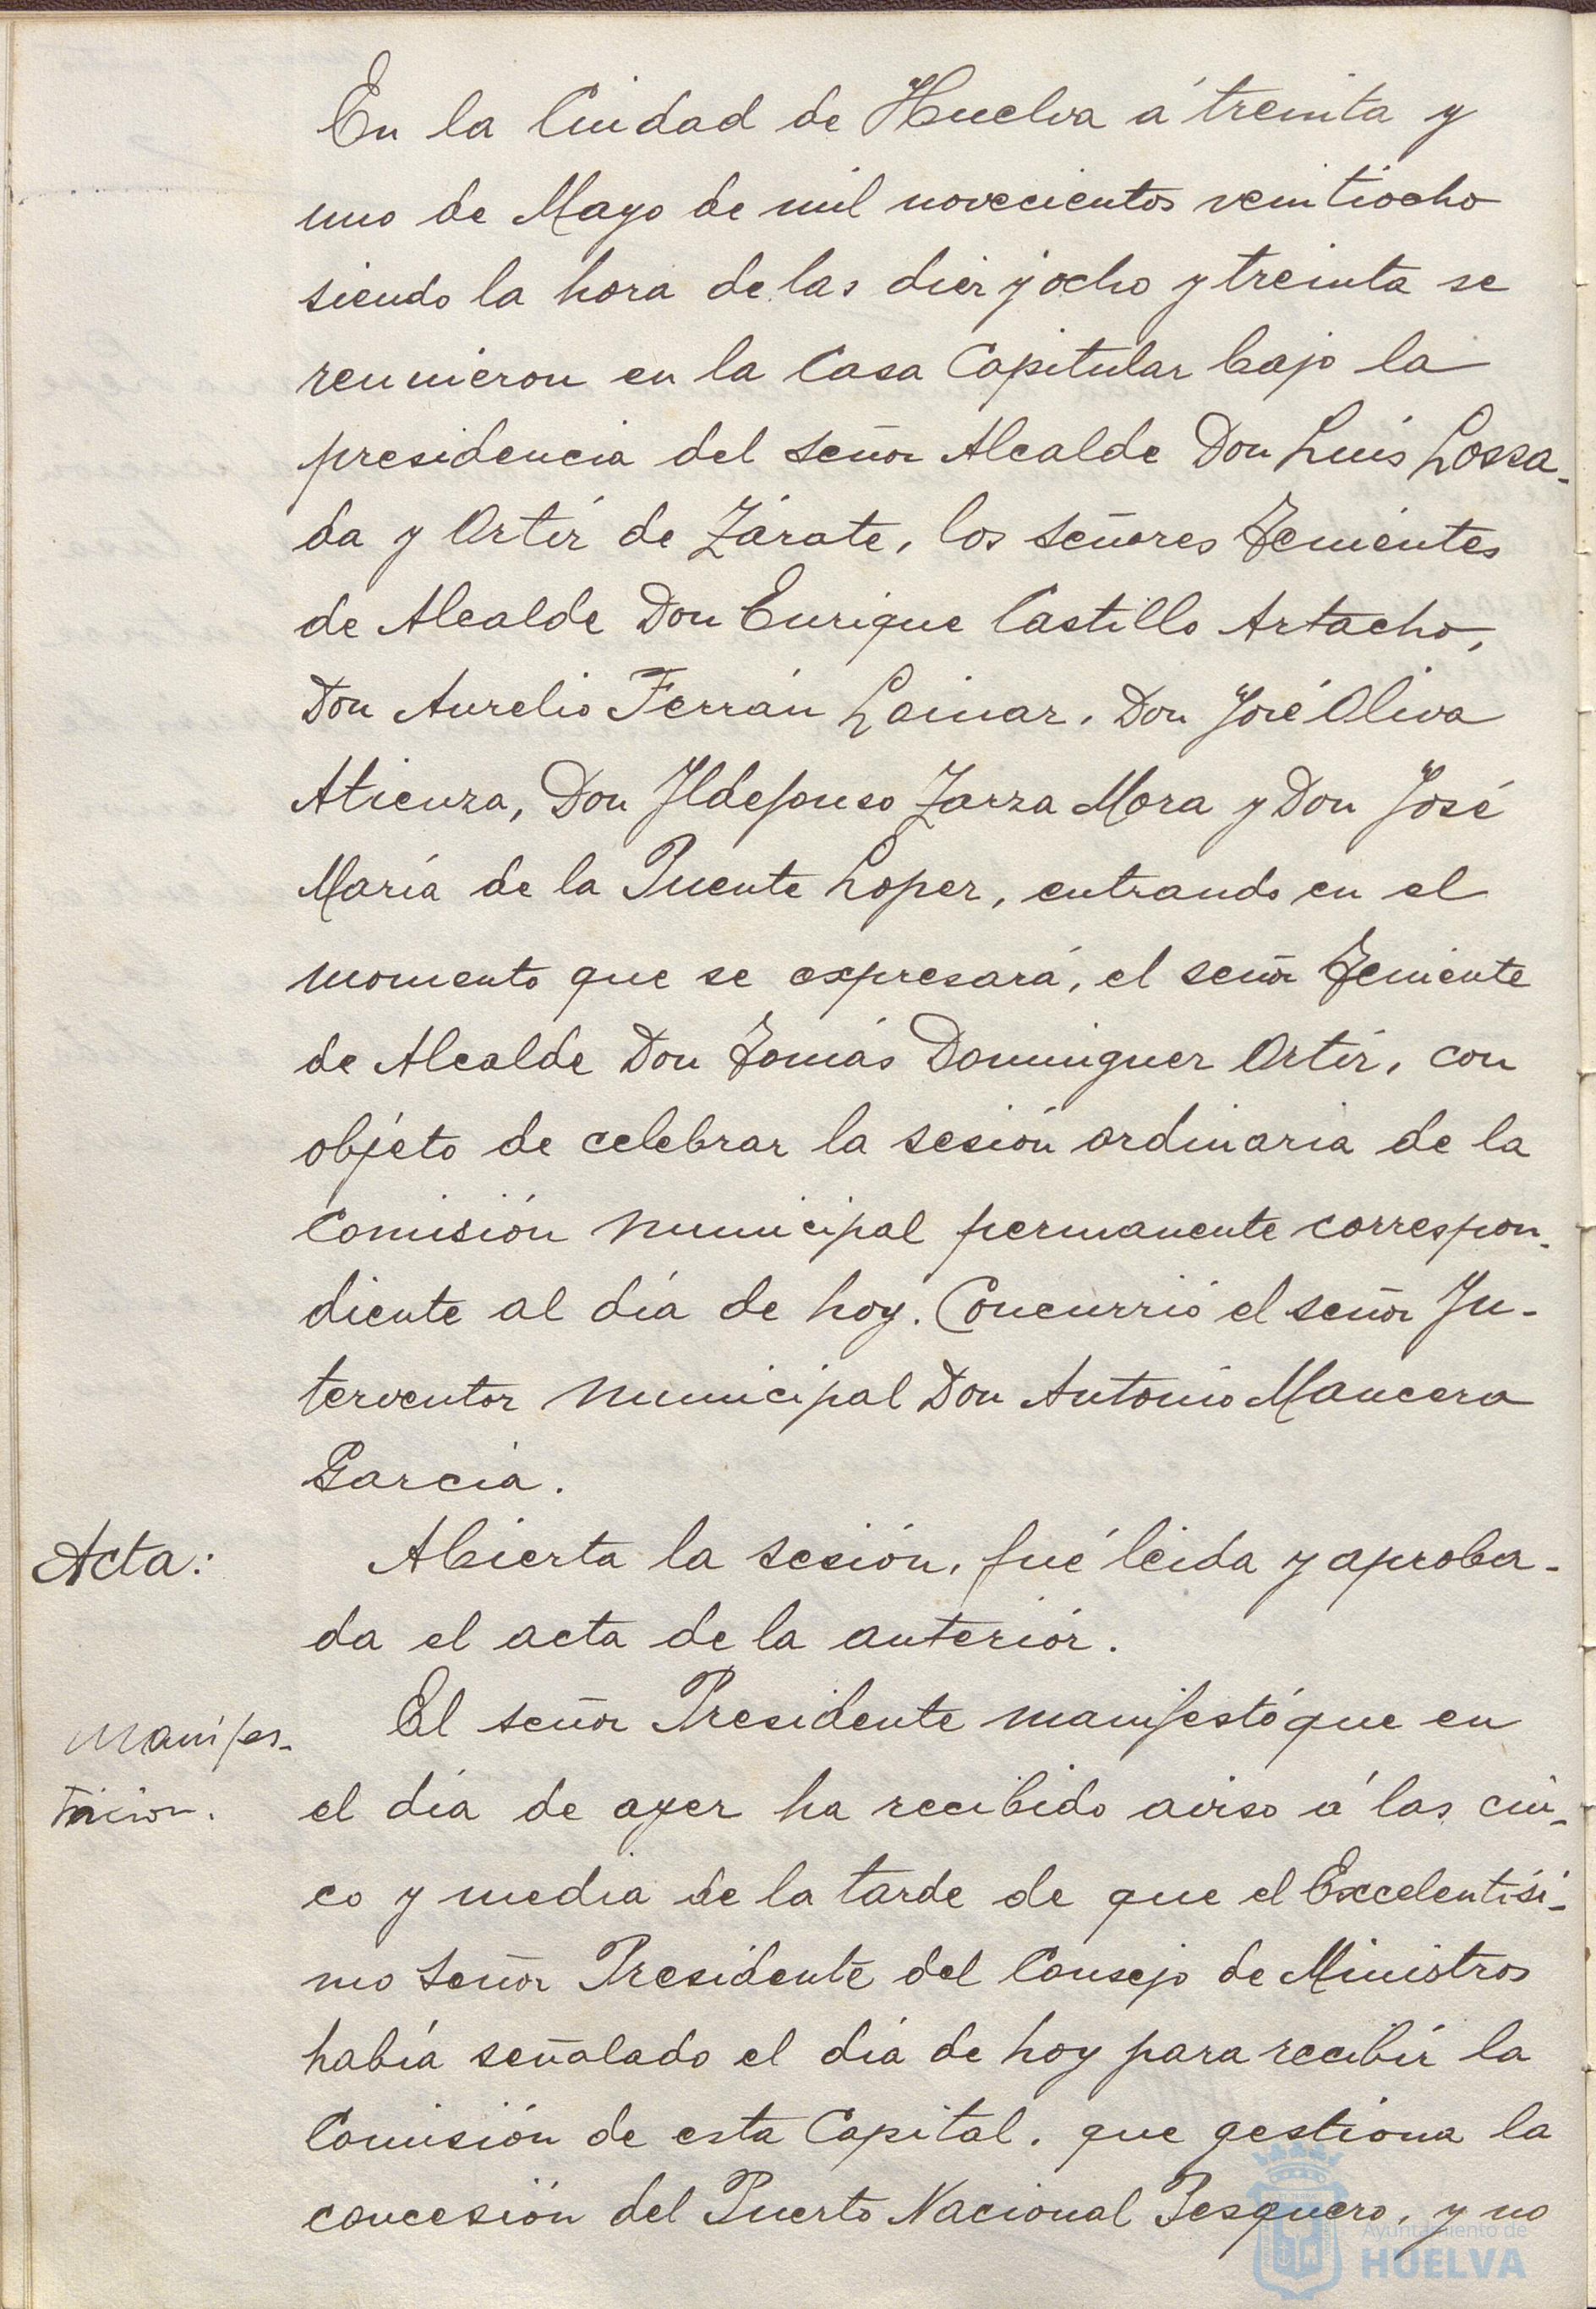 En la Ciudad de Huelva á treinta y
uno de Mayo de mil novecientos veintiocho
siendo la hora de las diez y ocho y treinta se
reunieron en la Casa Capitular bajo la
presidencia del señor Alcalde Don Luis Lossa-
da y Ortíz de Zárate, los señores Tenientes
de Alcalde Don Enrique Castillo Artacho,
Don Aurelio Ferrán Loinaz, Don José Oliva
Atienza, Don Ildefonso Zarza Mora y Don José
María de la Puente Lopez, entrando en el
momento que se expresará, el señor Teniente
de Alcalde Don Tomás Dominguez Ortíz, con
objeto de celebrar la sesión ordinaria de la
Comisión municipal permanente correspon-
diente al día de hoy. Concurrió el señor In-
terventor municipal Don Antonio Mancera
García.
Acta: Abierta la sesión, fué leida y aproba-
da el acta de la anterior.
Manifes- El señor Presidente manifestó que en
tación. el día de ayer ha recibido aviso á las cin-
co y media de la tarde de que el Excelentísi-
mo señor Presidente del Consejo de Ministros
había señalado el día de hoy para recibir la
Comisión de esta Capital, que gestiona la
concesión del Puerto Nacional Pesquero, y no
Ayuntamiento de
HUELVA